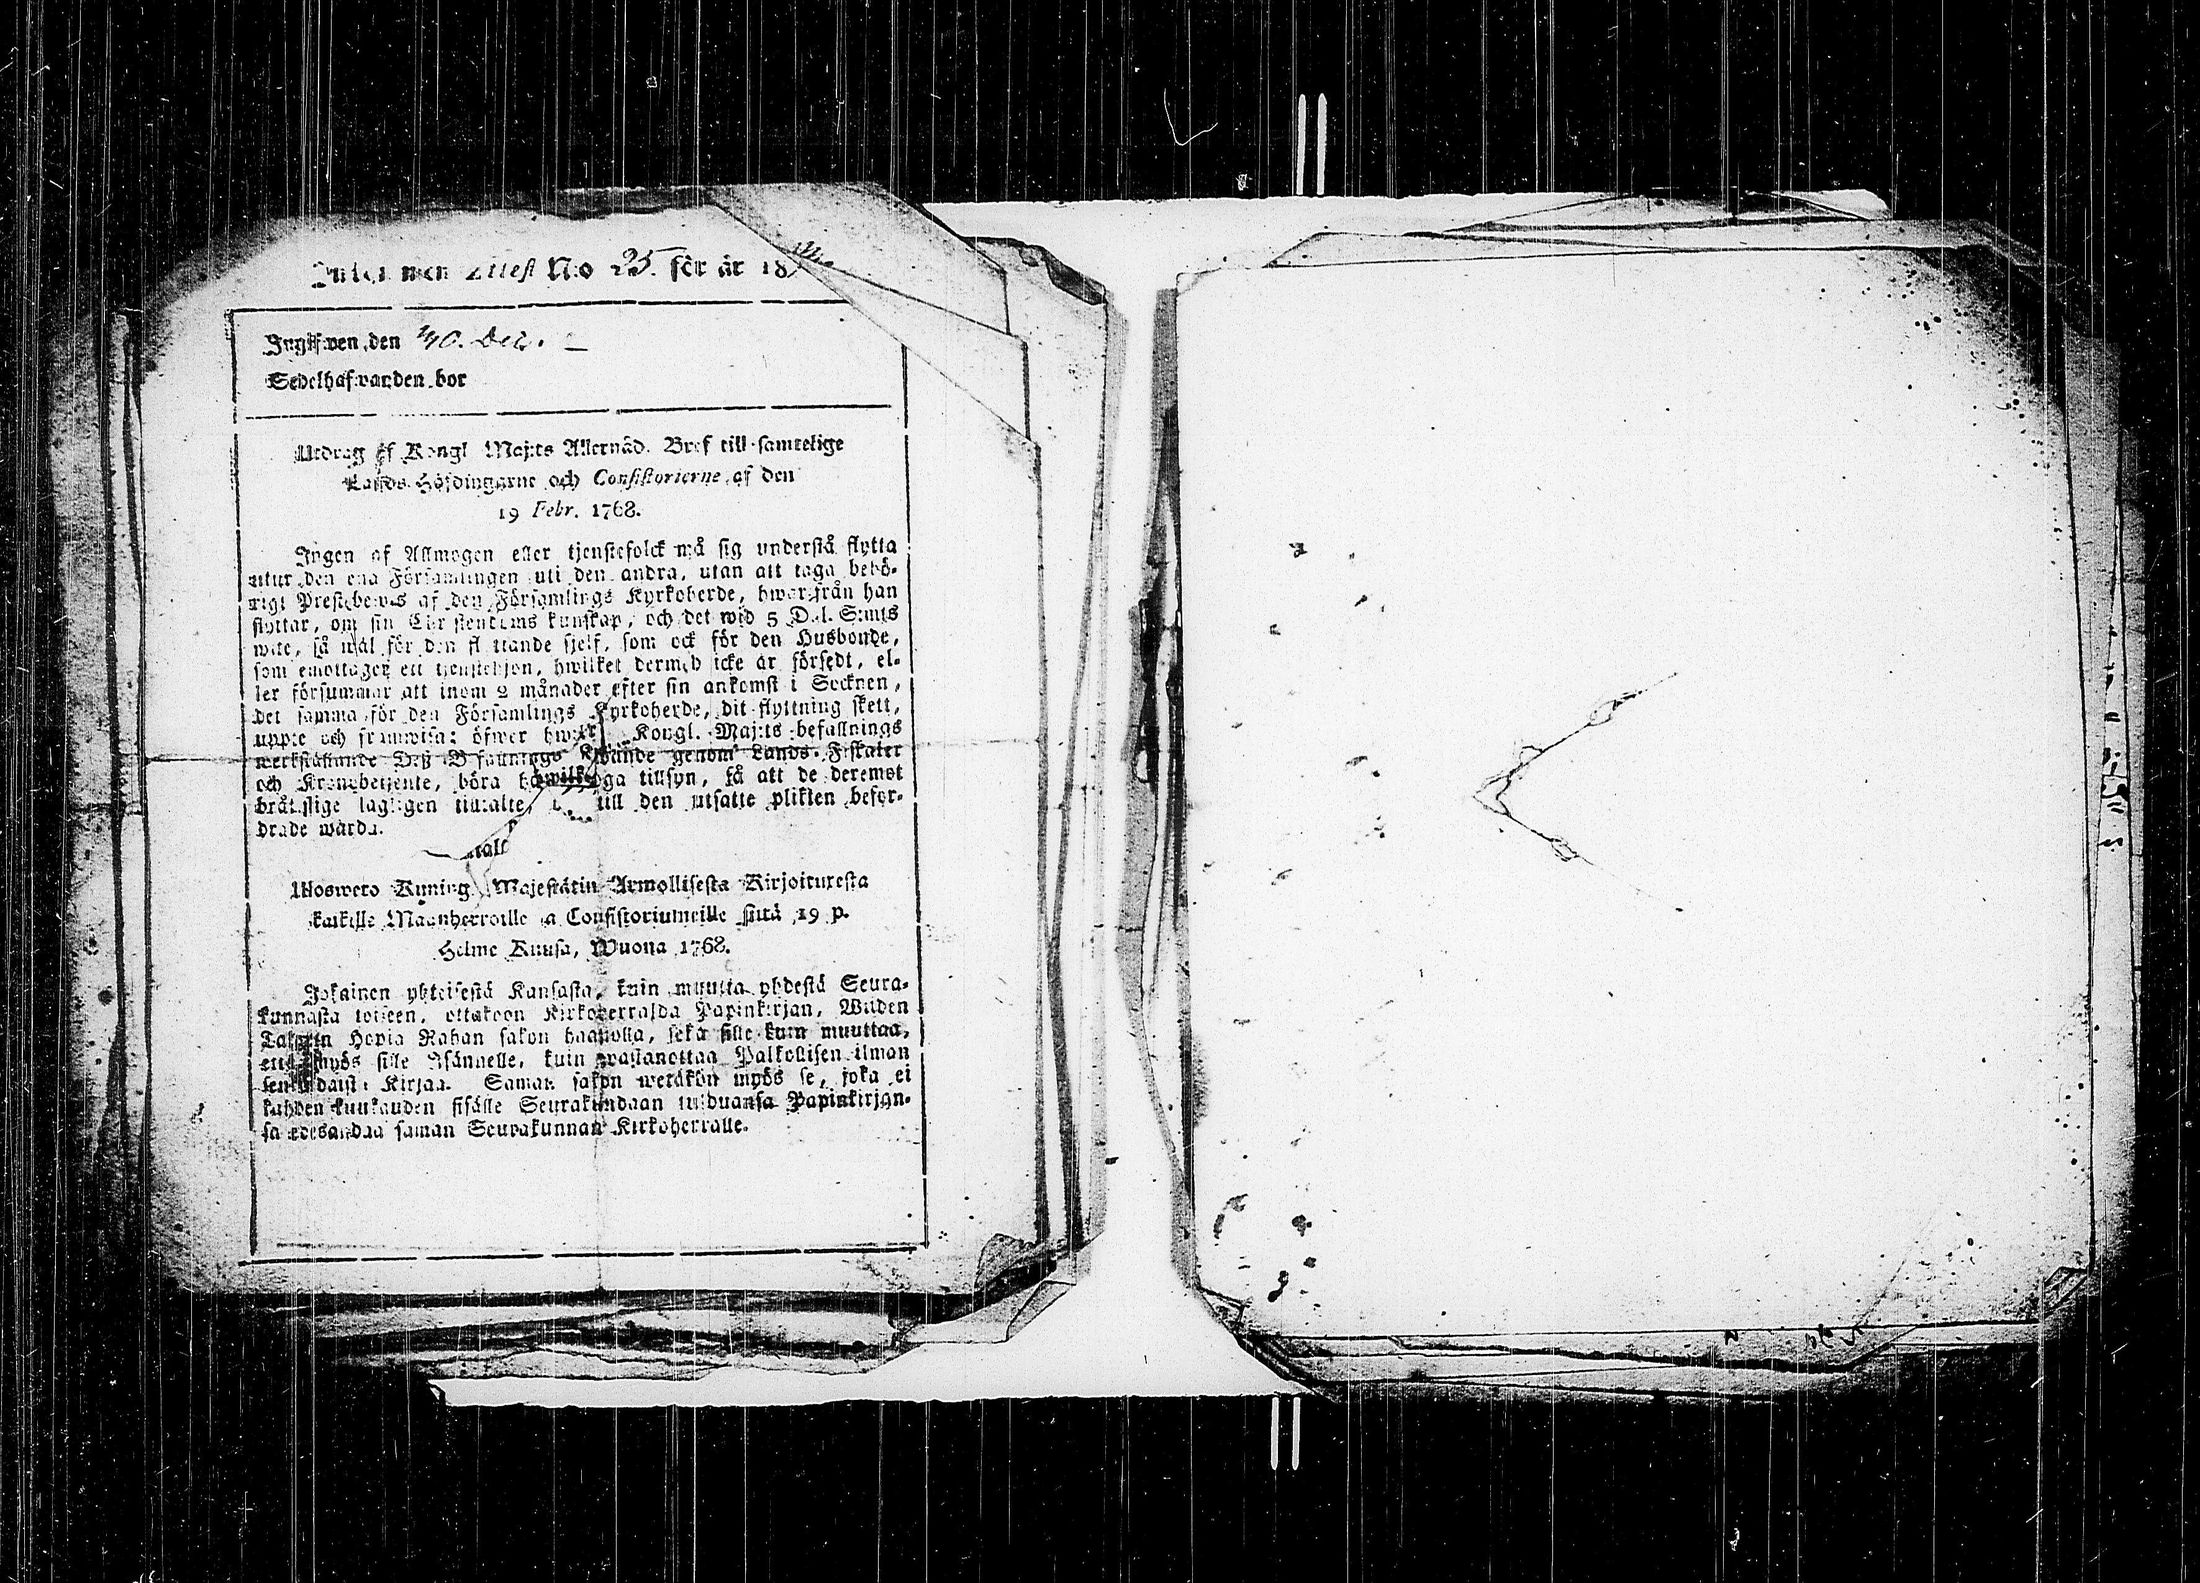 Attest N:o 25. för år 18
Ingifwen den 30. Dec.
Sedelhafwanden bor
Utdrag af Kongl Maj:ts Allernåd. Bref till samtelige
Lands-Höfdingarne och Consistorierne af den
19 Febr. 1768.
Ingen af Allmogen eller tjenstefolck må sig understå flytta
utur den ena Församlingen uti den andra, utan att taga behö-
rigt Prestebewis af den Församlings Kyrkoherde, hwarifrån han
flyttar, om sin Christendoms kunskap, och det wid 5 Dal. S:mts
wite, så wäl för den flyttande sjelf, som ock för den Husbonde,
som emottager ett tjenstehjon, hwilket dermed icke är försedt, el-
ler försummar att inom 2 månader efter sin ankomst i Socknen,
det samma för den Församlings Kyrkoherde, dit flyttning skett,
uppte och framwisa: öfwer hwars Kongl. Maj:ts befallnings
werkställande Deß Befallnings hafwande genom Lands-Fiskaler
och Kronobetjente, böra hafwa noga tillsyn, så att de deremot
bråtslige lagligen tilltalte, till den utsatte plikten befor-
drade warda.
Uloswero Kuning. Majestätin Armollisesta Kirjoituxesta
kaikille Maanherroille ja Consistoriumeille siitä 19 p.
Helme Kuusa, Wuona 1768.
Jokainen yhteisestä Kansasta, kuin muutta yhdestä Seura-
kunnasta toiseen, ottakoon Kirkoherralda Papinkirjan, Wiiden
Talarin Hopia Rahan sakon haastolla, sekä sille kuin muuttaa,
että myös sille Isännelle, kuin wastanottaa Palkollisen ilman
senkaldaista Kirjaa. Saman sakon wetäkön myös se, joka ei
kahden kuukauden sisälle Seurakundaan tulduansa Papinkirjan-
sa edesandaa saman Seurakunnan Kirkoherralle.